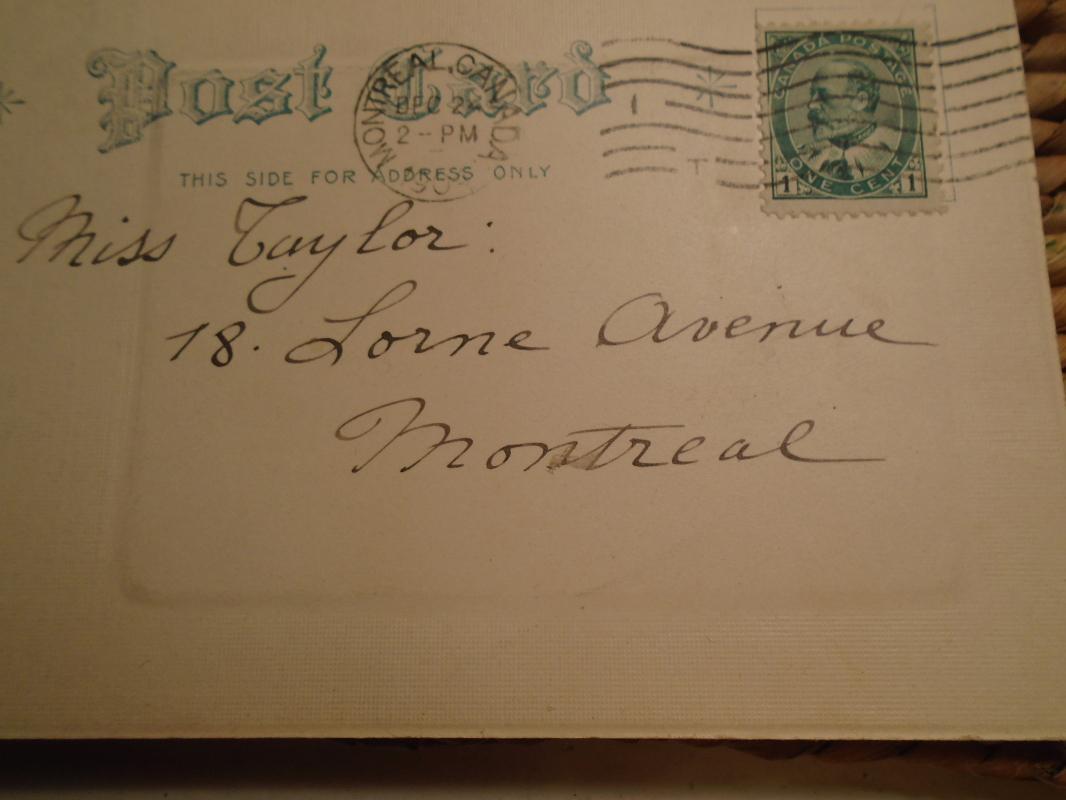 Post Card
MONTREAL, CANADA
DEC 2
2 - PM
190
1
T
CANADA POSTAGE
ONE CENT
1 1
THIS SIDE FOR ADDRESS ONLY
Miss Taylor:
18. Lorne Avenue
Montreal